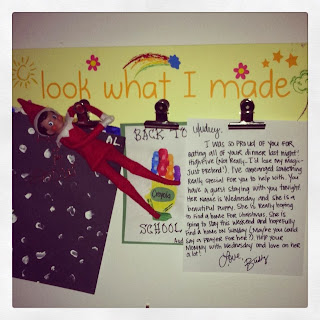 look what I made
BACK TO
SCHOOL
Crayola
I was so proud of you for
eating all of your dinner last night!
High Five (not Really... I'd lose my magic -
Just pretend!). I've arranged something
Really special for you to help with. You
have a guest staying with you tonight!
Her name is Wednesday and she is a
beautiful puppy. She is Really hoping
to find a home for Christmas. She is
going to stay the weekend and hopefully
find a home on Sunday (Maybe you could
say a prayer for her?) Help your
Mommy with Wednesday and love on her
a lot!
Love,